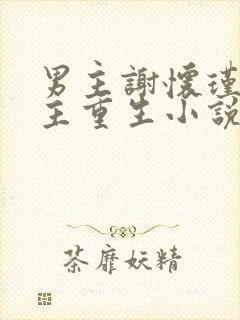 男主謝懷瑾
主重生小說
荼靡妖精